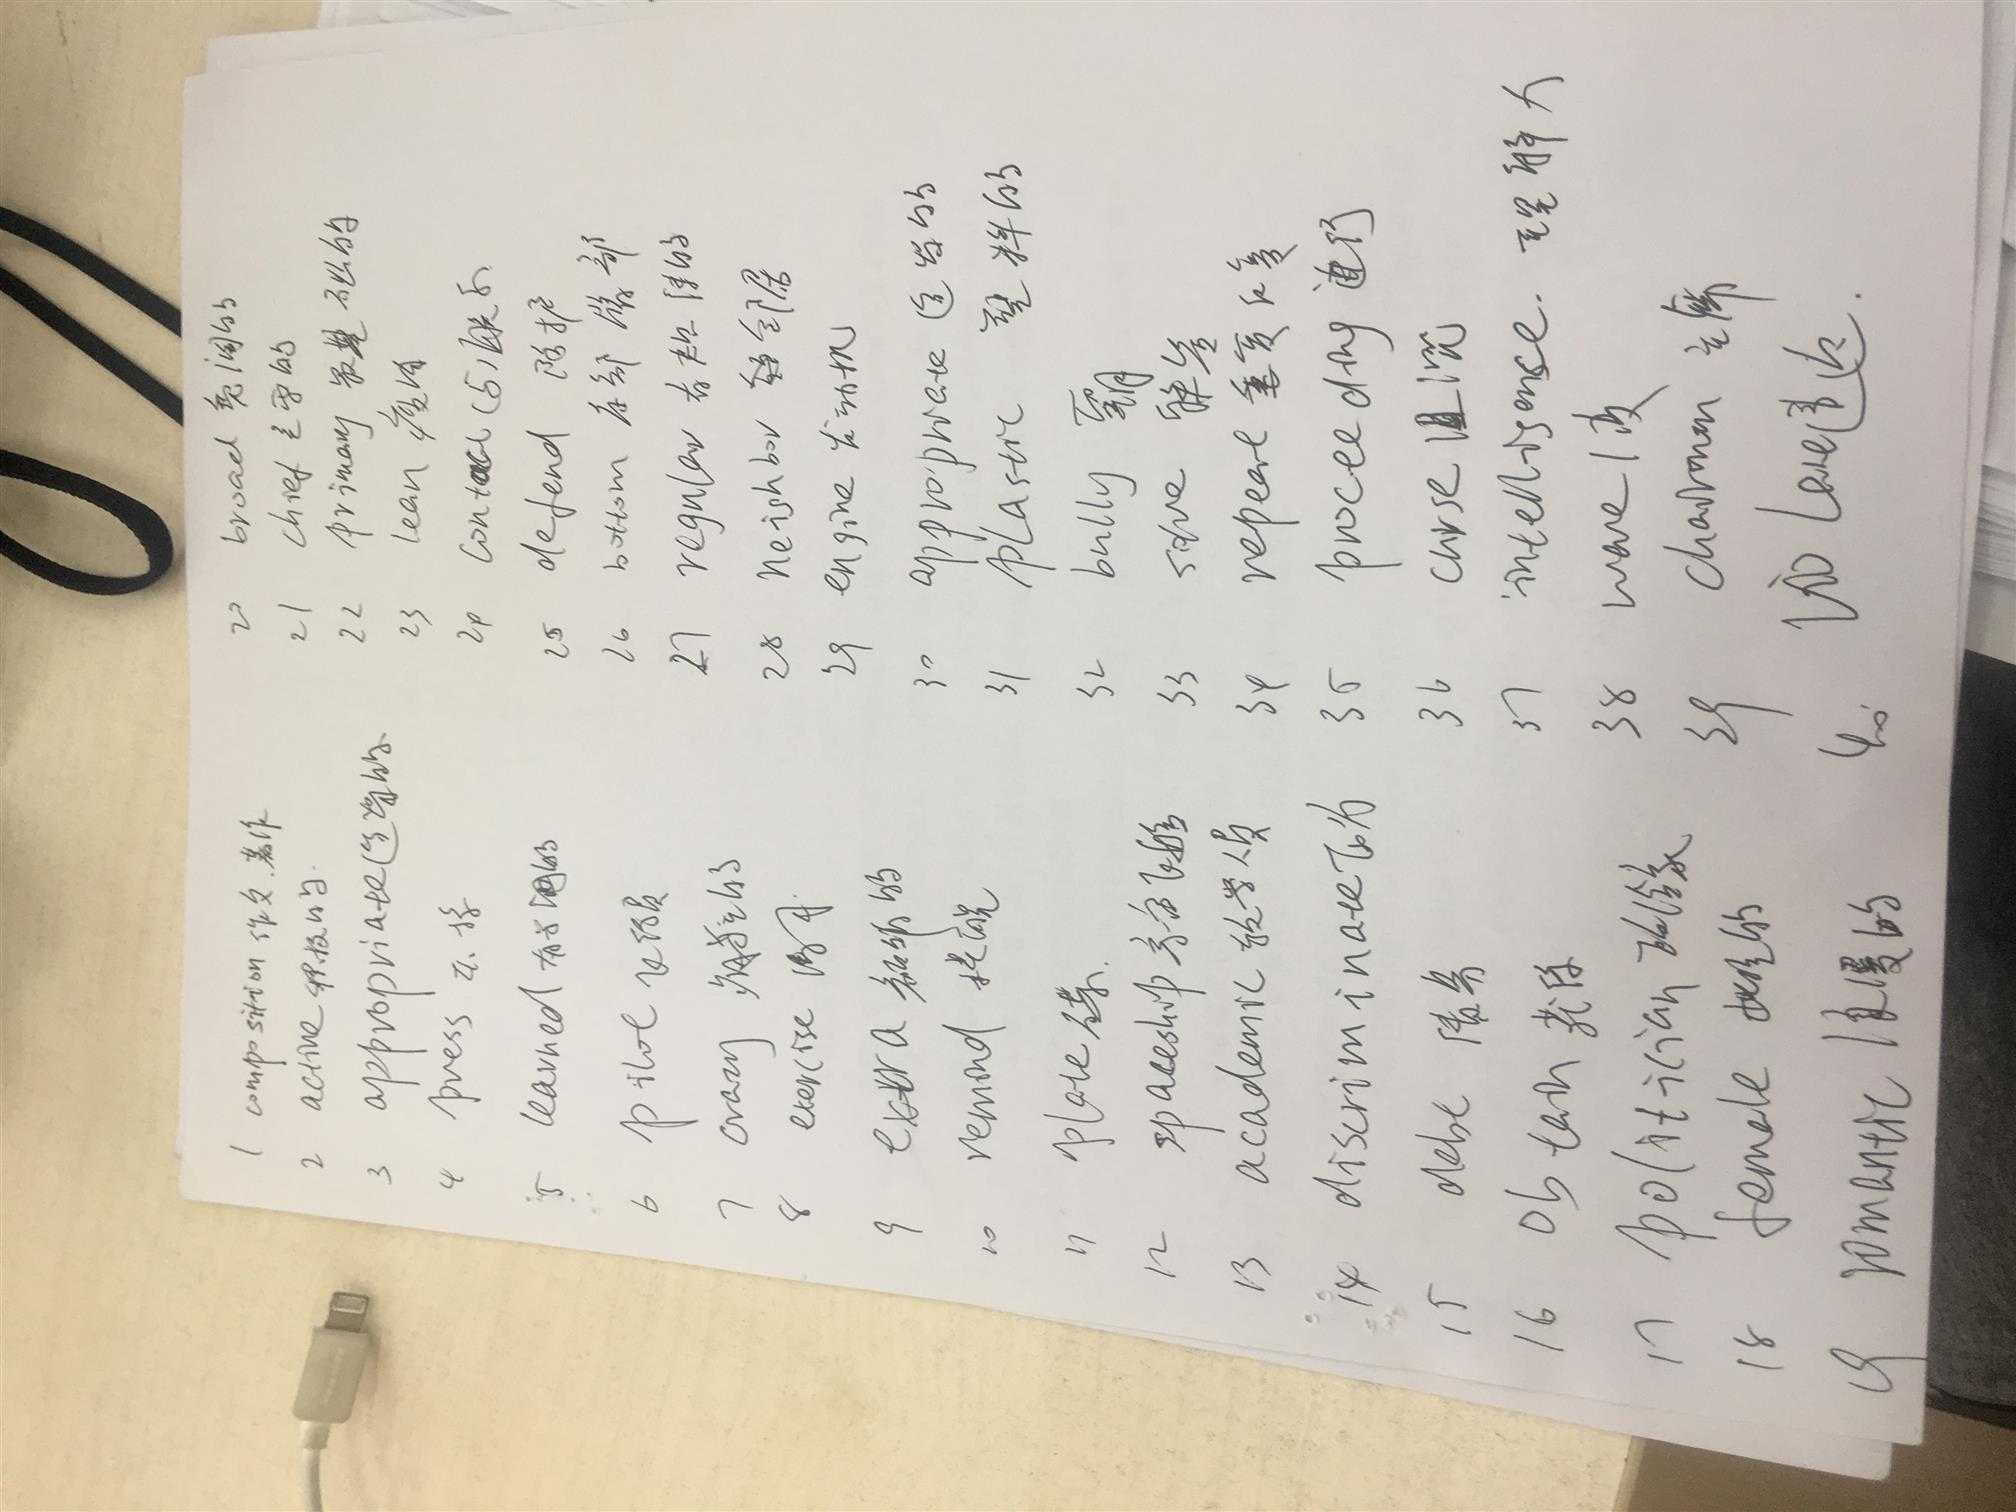 1 composition 作文.著作
2 active 积极的.
3 appropriate 适当的
4 press 压.挤
5 learned 有学问的
6 pilot 飞行员
7 crazy 发疯的
8 exercise
9 extra 额外的
10 remind 提醒
11 plate 盘.
12 spaceship 宇宙飞船
13 academic 教学人员
14 discriminate 区分
15 debt 债务
16 obtain 获得
17 politician 政治家
18 female 女性的
19 romantic 浪漫的
20 broad 宽阔的
21 chief 主要的
22 primary 最基本的
23 lean
24 contact 与联系
25 defend 防护
26 bottom 底部 臀部
27 regular 有规律的
28 neighbor 邻居
29 engine 发动机
30 appropriate 适当的
31 plastic 塑料的
32 bully 霸
33 solve 解答
34 repeat 重复 反复
35 proceeding 进行
36 curse 咒
37 intelligence. 理解力
38
39 chairman 主席
40.